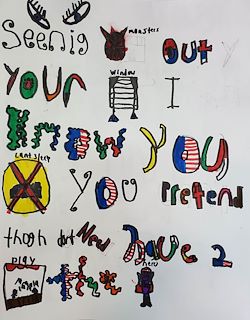 Seenig monsters out y
your window I
know you
cant sleep you Pretend
thogh dont Need have 2
play hero